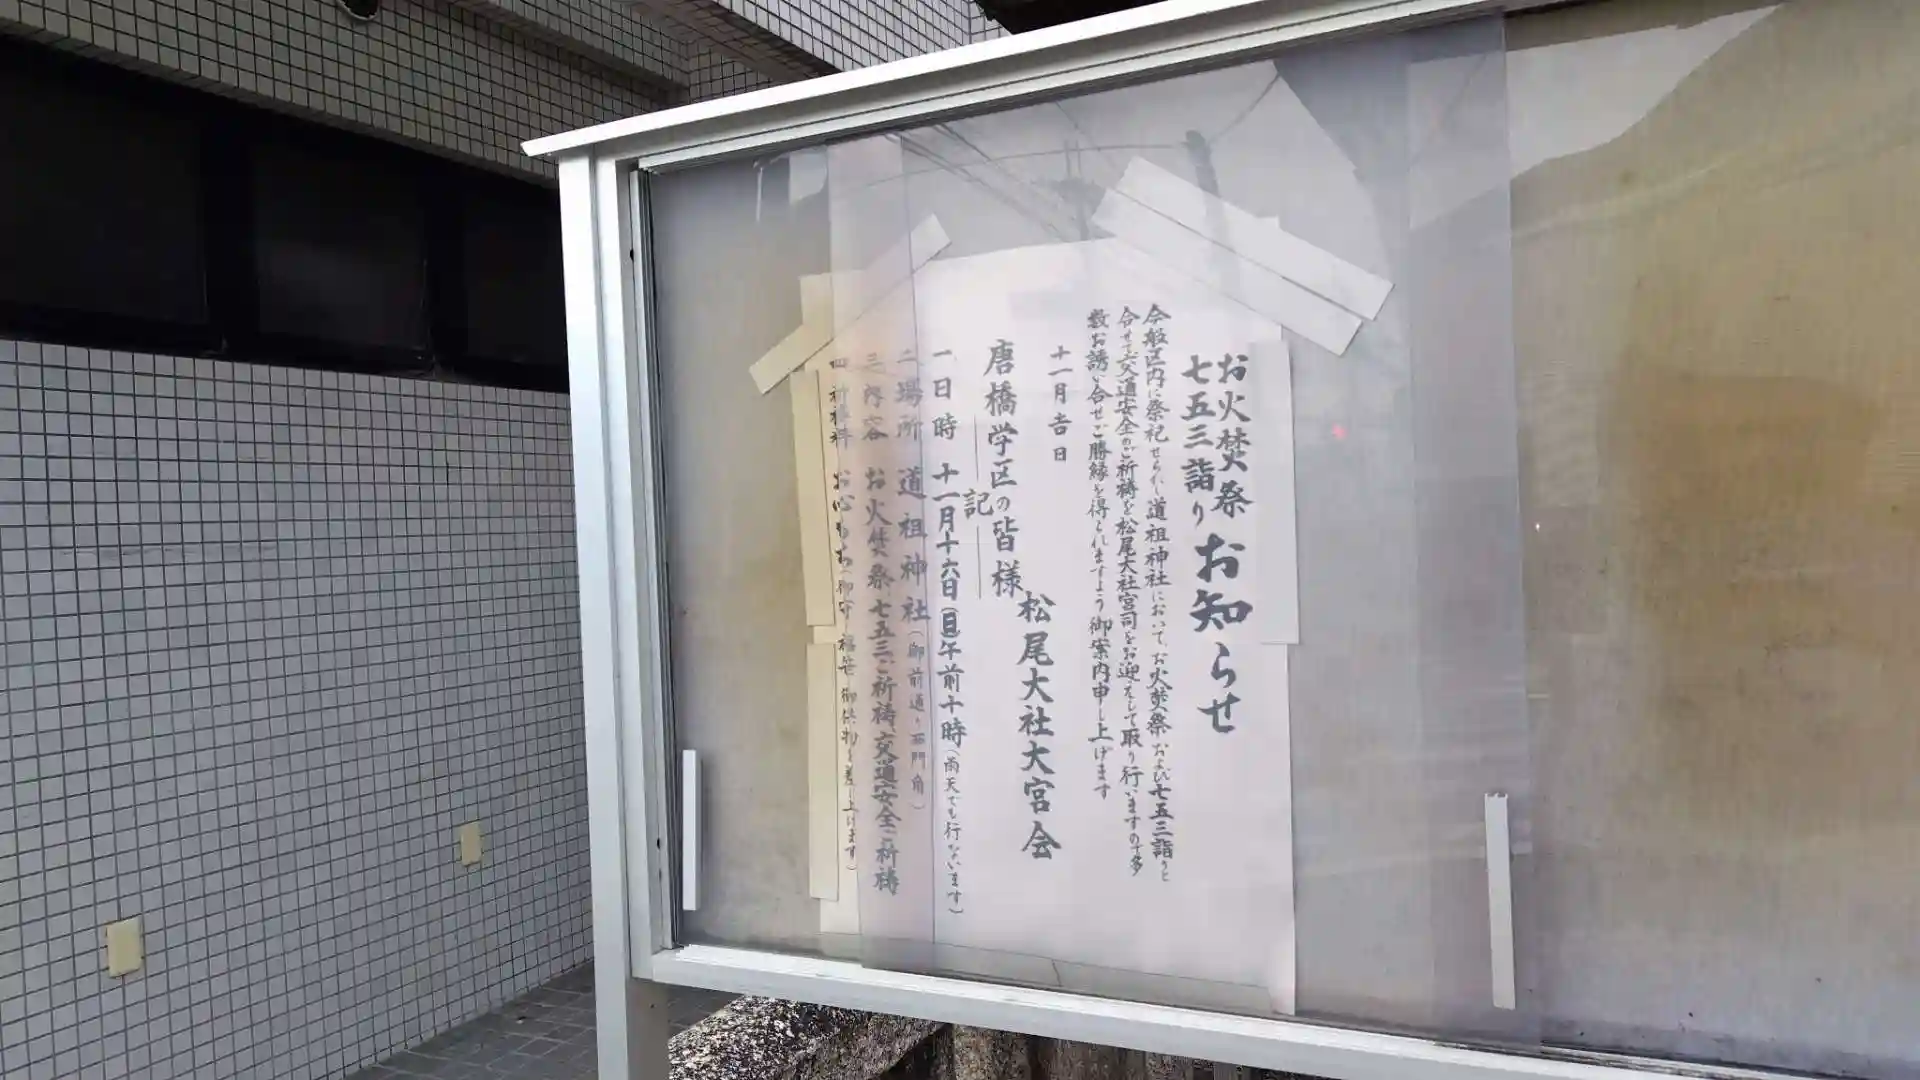 お火焚祭
七五三詣り
お知らせ
今般区内に祭祀せられし道祖神社において、お火焚祭および七五三詣りと
合せて交通安全のご祈祷を松尾大社宮司をお迎えして取り行いますので多
数お誘い合せご勝縁を得られますよう御案内申し上げます
十一月吉日
松尾大社大宮会
唐橋学区の皆様
記
一、日時 十一月十六日(日)午前十時(雨天でも行ないます)
二、場所 道祖神社(御前通り西門角)
三、内容 お火焚祭、七五三ご祈祷、交通安全ご祈祷
四、祈祷料 お心もち(御守、福笹、御供物を差し上げます)